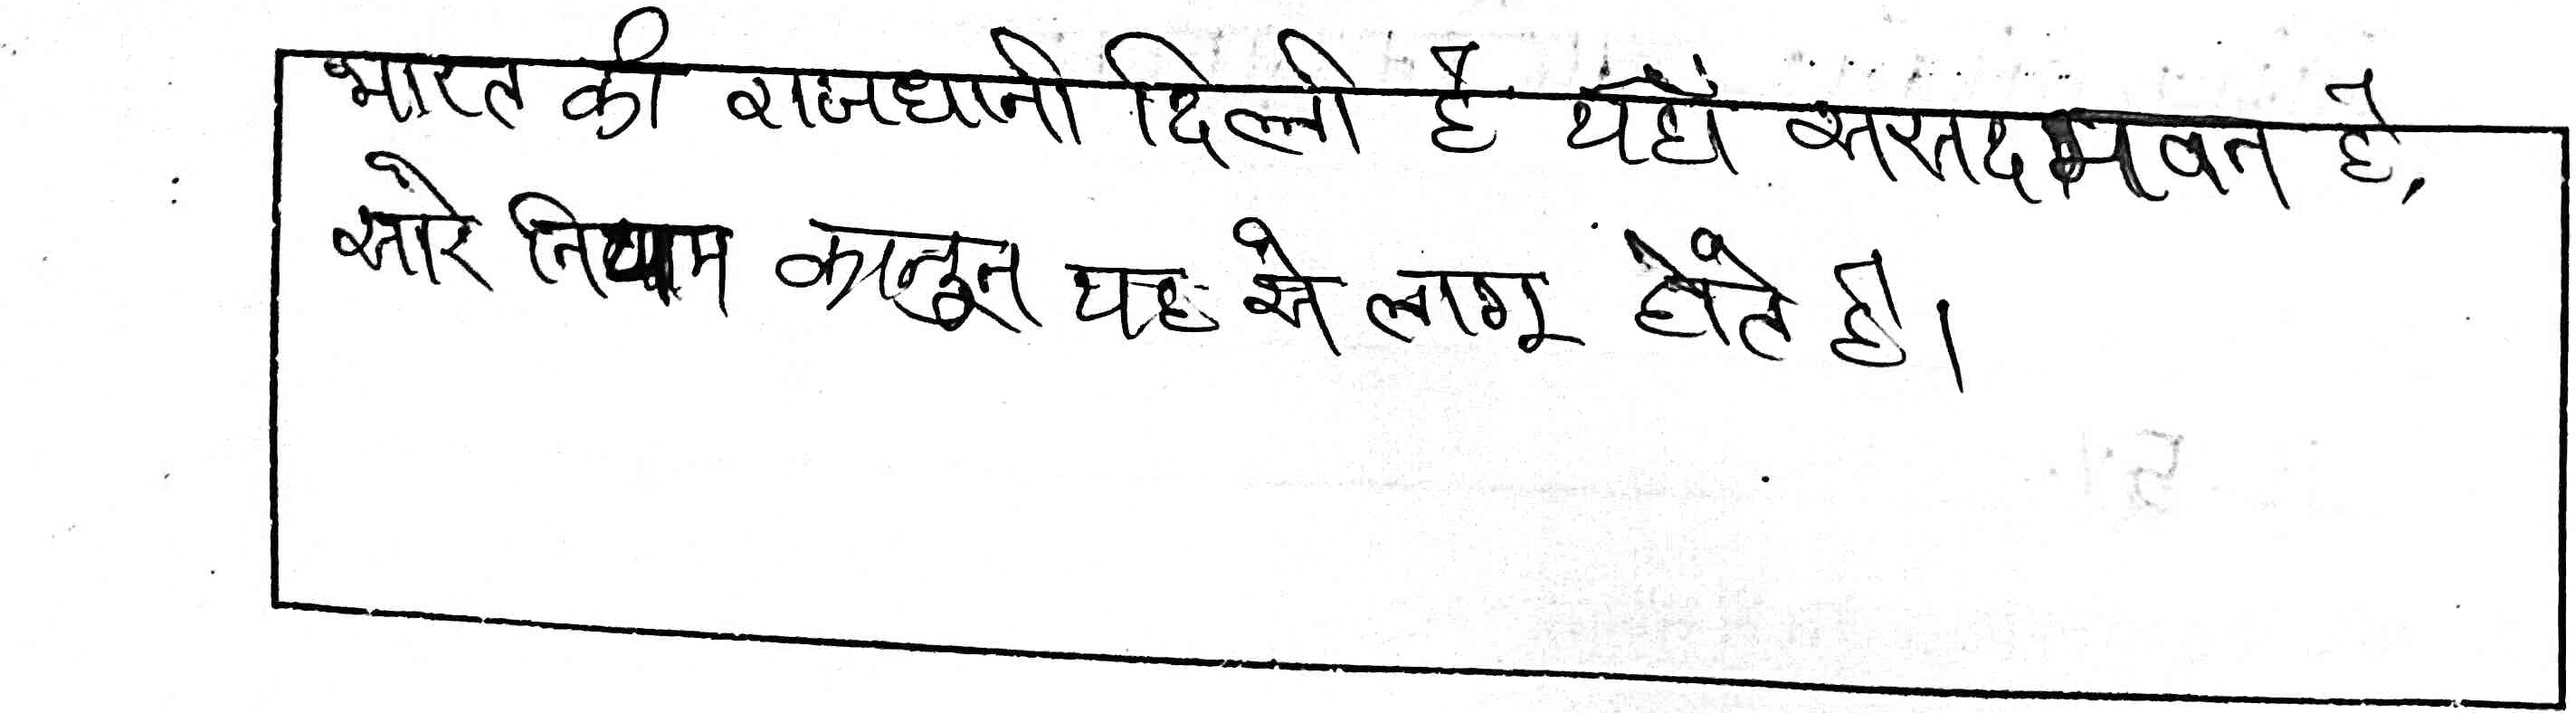 भारत की राजधानी दिल्ली है यहाँ संसद भवन है,
सारे नियम कानून यह से लागू होते है।